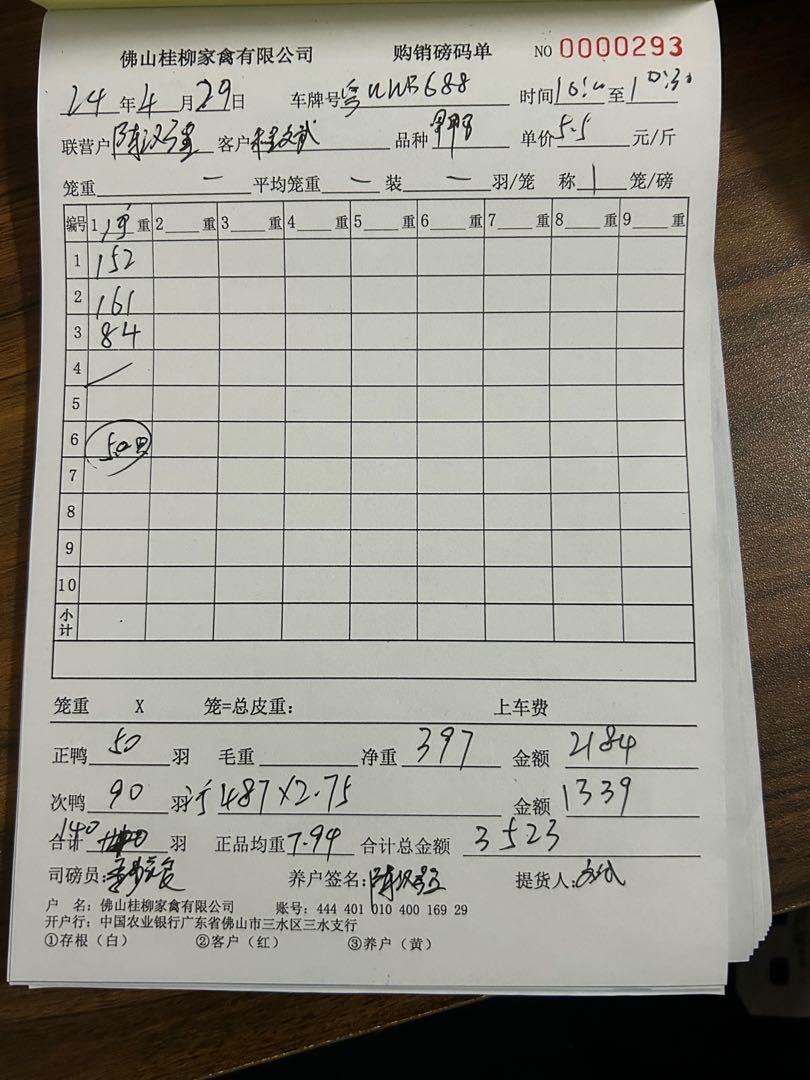 佛山桂柳家禽有限公司 购销磅码单 NO 0000293
24 年 4 月 29 日 车牌号 粤 688 时间 至 10:30
联营户 陈汉 客户 桂文武 品种 单价 5.5 元/斤
笼重 一 平均笼重 一 装 一 羽/笼 称 1 笼/磅
编号 1 净 重 2 重 3 重 4 重 5 重 6 重 7 重 8 重 9 重
1 152
2 161
3 84
4
5
6 50只
7
8
9
10
小计
笼重 X 笼=总皮重: 上车费
正鸭 50 羽 毛重 净重 397 金额 2184
次鸭 90 羽 487×2.75 金额 1339
合计 140 羽 正品均重 7.94 合计总金额 3523
司磅员: 养户签名: 陈汉 提货人:
户 名: 佛山桂柳家禽有限公司 账号: 444 401 010 400 169 29
开户行: 中国农业银行广东省佛山市三水区三水支行
①存根（白） ②客户（红） ③养户（黄）